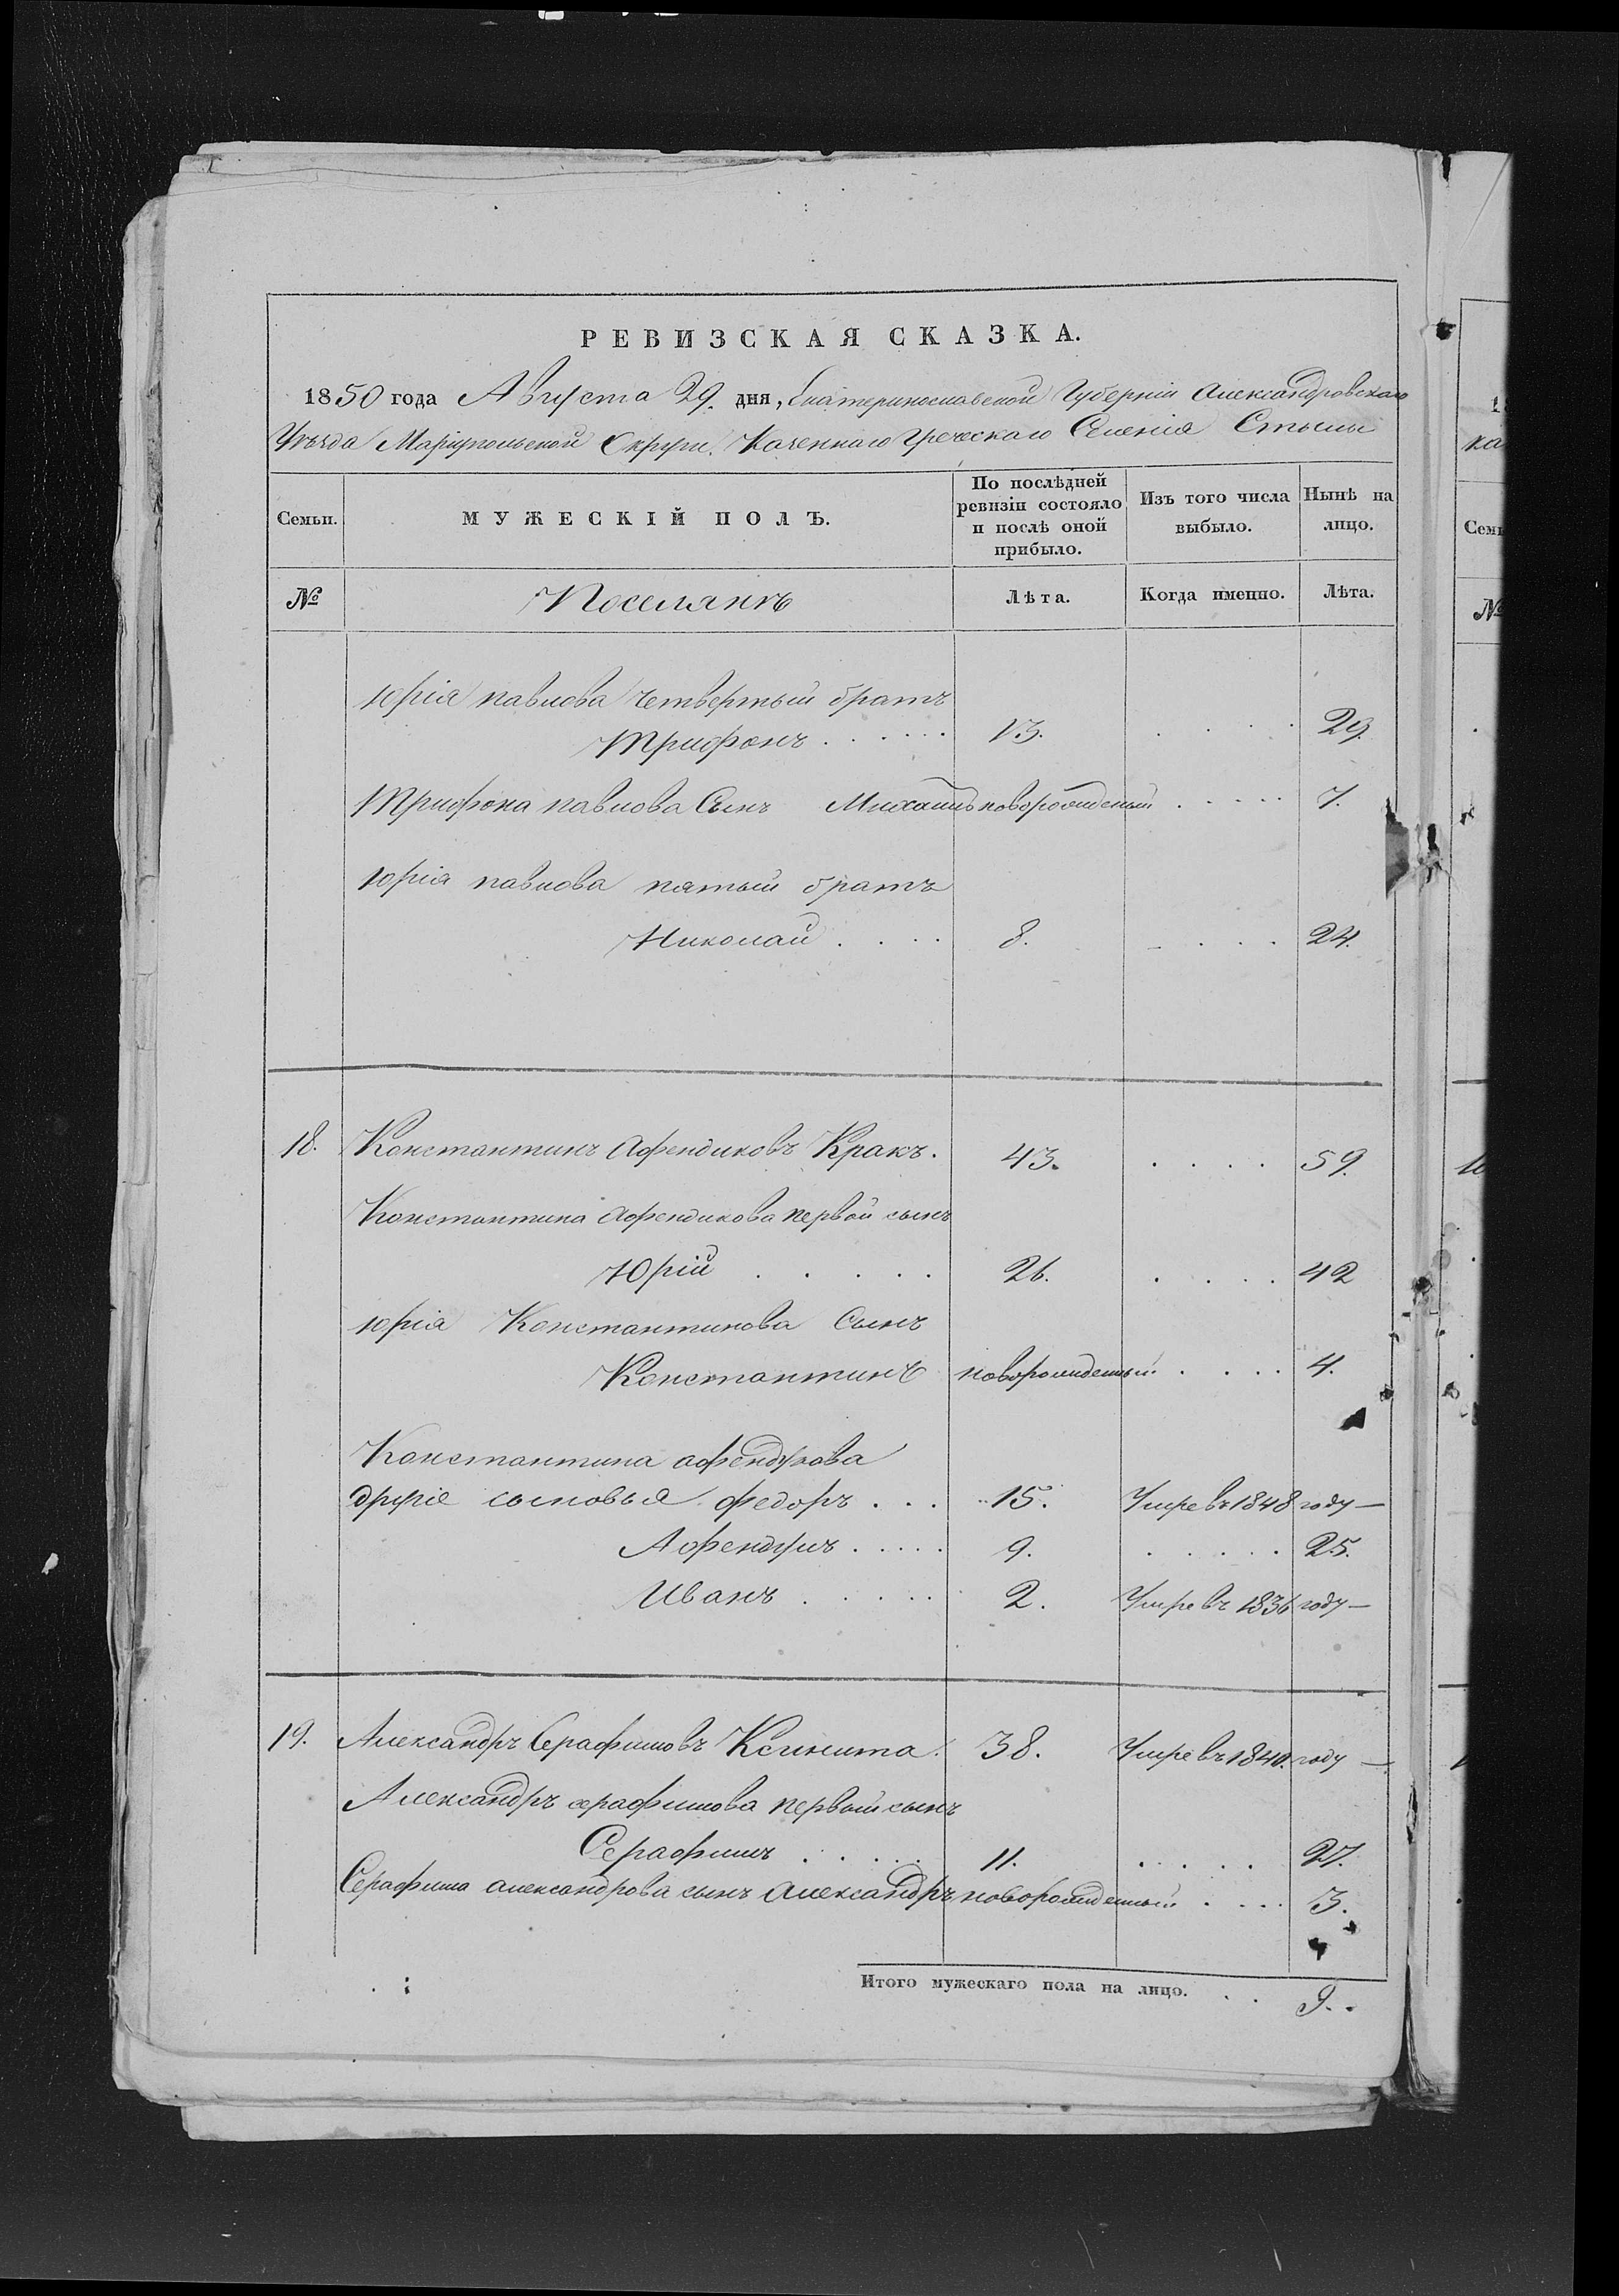 РЕВИЗСКАЯ СКАЗКА.
1850 года Августа 29. дня, Екатеринославской Губерніи Александровскаго
Уѣзда Маріупольской Округи, Казеннаго Греческаго Селенія Стылы
Семьи.
МУЖЕСКІЙ ПОЛЪ.
По послѣдней ревизіи состояло и послѣ оной прибыло.
Изъ того числа выбыло.
Нынѣ на лицо.
№ Поселянъ Лѣта. Когда именно. Лѣта.
Юрія павлова четвертый братъ
Трифонъ . . . . . . 13. . . . . 29.
Трифона павлова Сынъ Михаилъ новорожденый . . . . . 7.
Юрія павлова пятый братъ
Николай . . . . 8. . . . . 24.
18. Константинъ Афендиковъ Кракъ. 43. . . . . 59.
Константина Афендикова первой сынъ
Юрій . . . . . 26. . . . . 42
Юрія Константинова Сынъ
Константинъ новорожденый . . . . 4.
Константина афендикова
другіе сыновья федоръ . . . 15. Умре въ 1848 году —
Афендикъ . . . . . 9. . . . . . 25.
Иванъ . . . . . 2. Умре въ 1836 году —
19. Александръ Серафимовъ Ксинита. 38. Умре въ 1840. году —
Александръ серафимова первый сынъ
Серафимъ . . . . . 11. . . . . . 27.
Серафима александрова сынъ александръ новорожденый . . . . 3.
Итого мужескаго пола на лицо. . . 9. .
18
ка
Семь
№